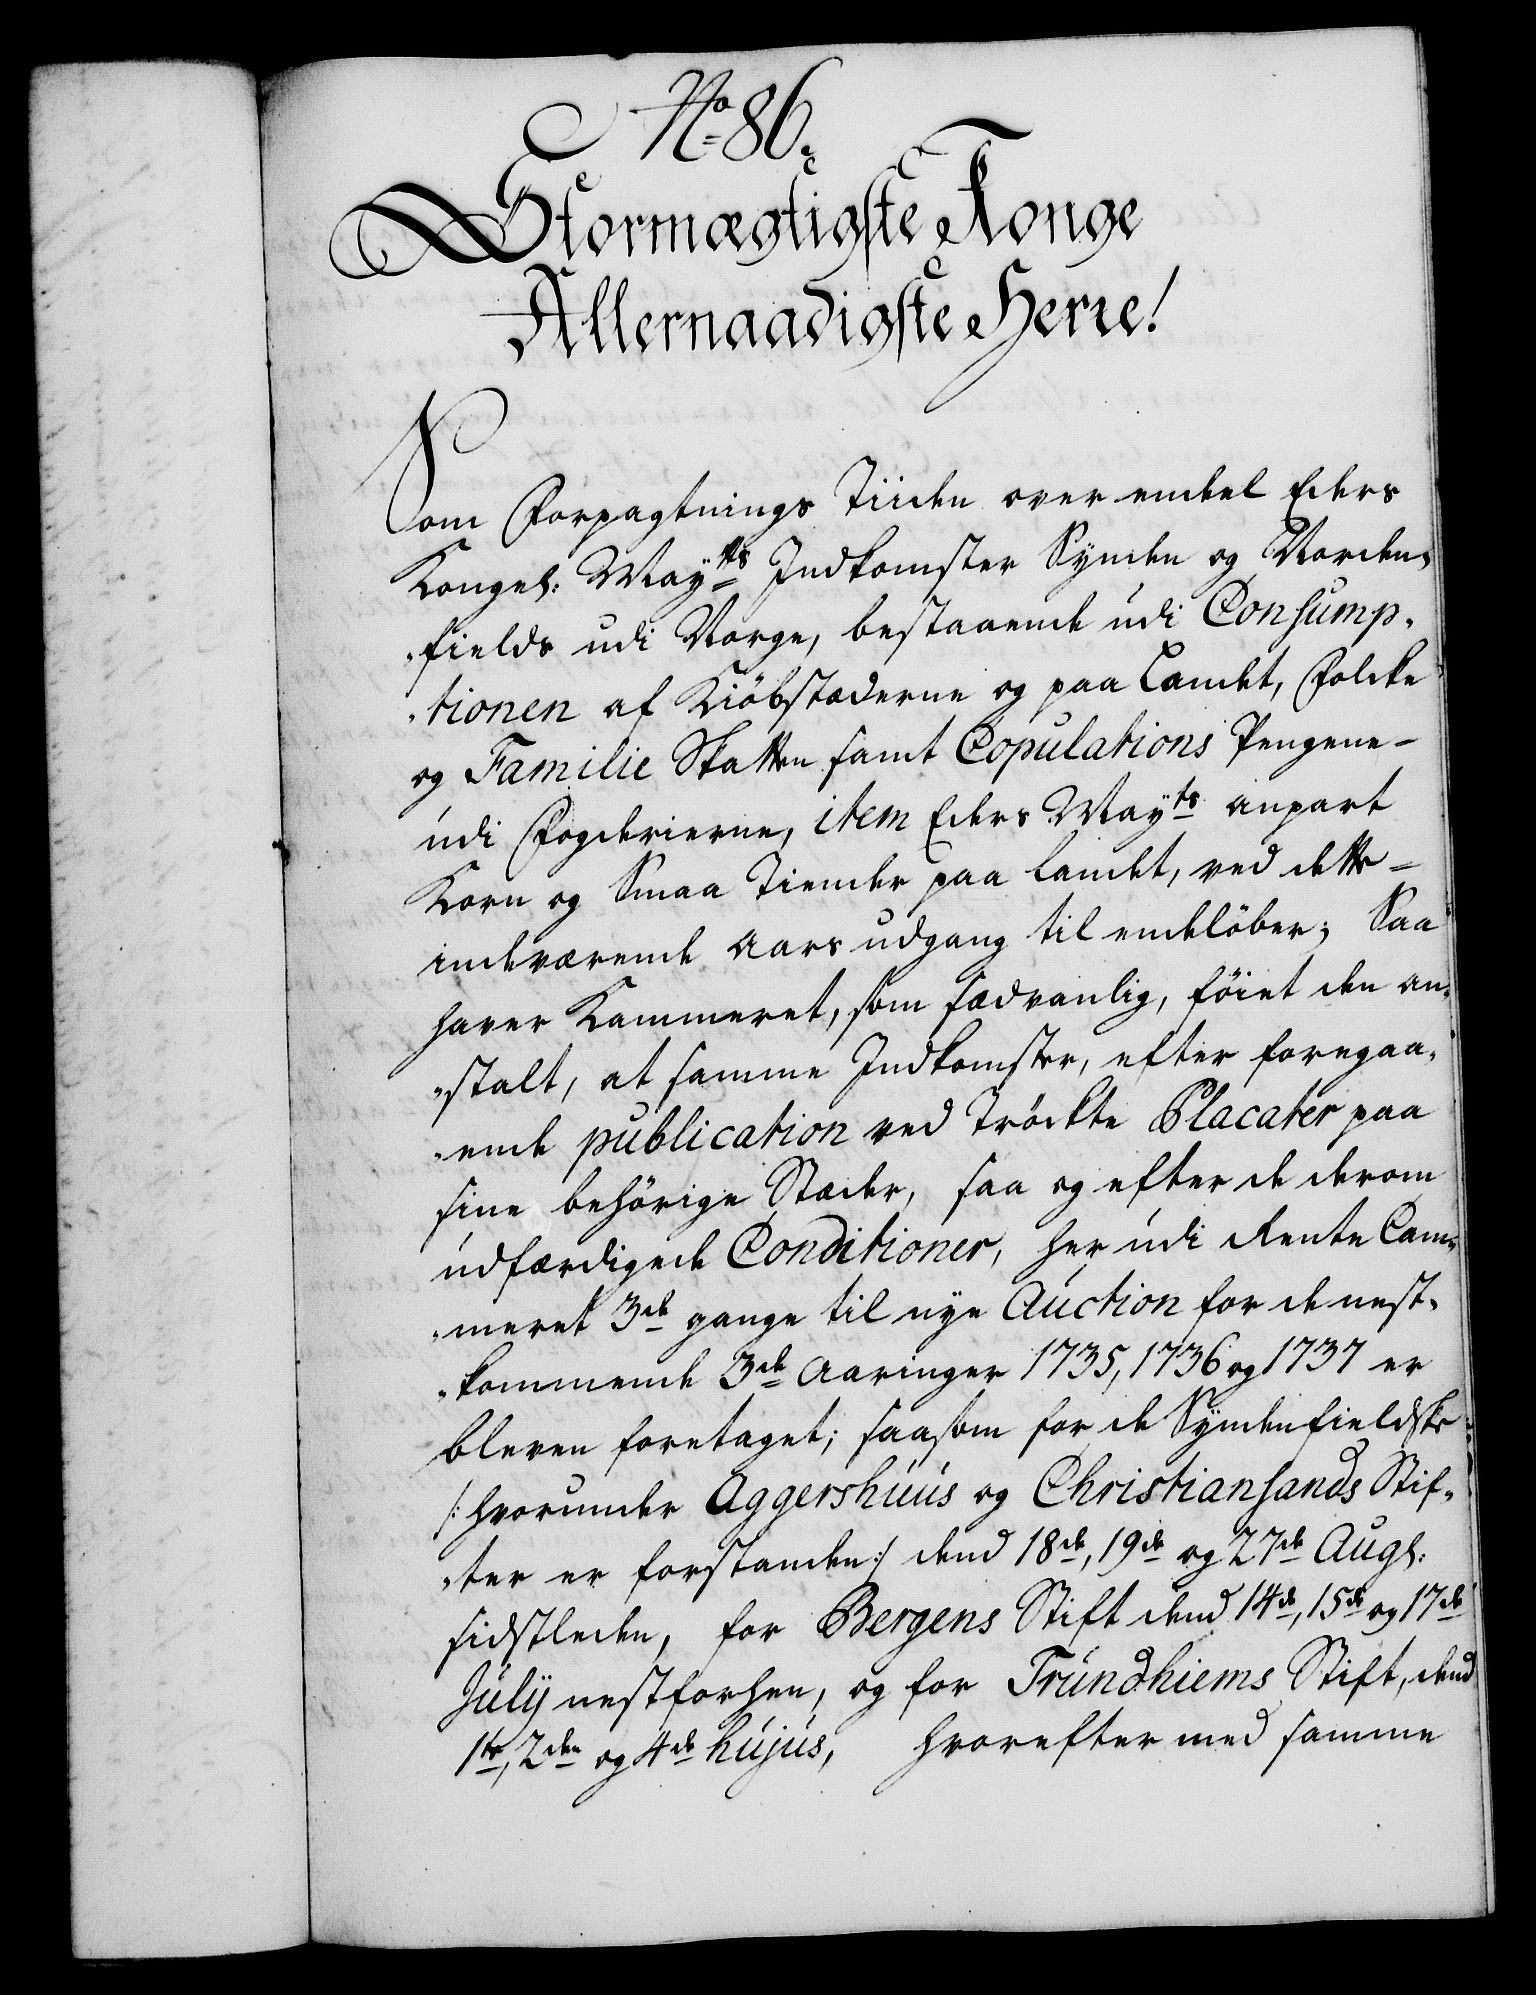 No 86.
Stormægtigste Konge
Allernaadigste Herre!
Som Forpagtnings Tiiden over endel Eders
Kongel: Mayts Indkomster Synden og Norden„
„fields udi Norge, bestaaende udi Consump„
„tionen af Kiöbstæderne og paa Landet, Folcke
og Familie Skatten samt Copulations Pengene
udi Fogderierne, item Eders Mayts anpart
Korn og Smaa Tiender paa Landet, ved dette
indeværende Aars udgang til endelöber; Saa
haver Kammeret, som sædvanlig, föiet den an„
„stalt, at samme Indkomster, efter foregaa„
„ende publication ved Tröckte Placater paa
sine behörige Stæder, saa og efter de derom
udfærdigede Conditioner, her udi Rente Cam„
„meret 3de gange til nye Auction for de nest„
„kommende 3de Aaringer 1735, 1736 og 1737 er
bleven foretaget; saasom for de Syndenfieldske
/: hvorunder Aggershuus og Christiansands Stif„
„ter er forstanden :/ dend 18de, 19de og 27de Augl:
sidstleden, for Bergens Stift dend 14de, 15de og 17de
July nestforhen, og for Trundhiems Stift, dend
1te, 2den og 4de hujus, hvorefter med samme